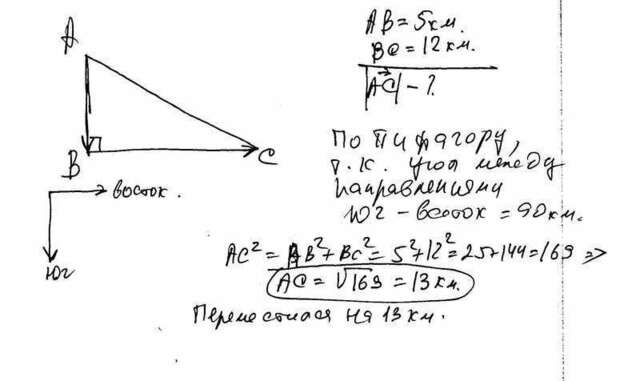 A
B
C
восток.
юг
AB = 5км.
BC = 12км.
|AC| - ?
По Пифагору,
т.к. угол между
направлениями
юг - восток = 90км.
AC² = AB² + BC² = 5² + 12² = 25 + 144 = 169 =>
AC = √169 = 13км.
Переместился на 13 км.